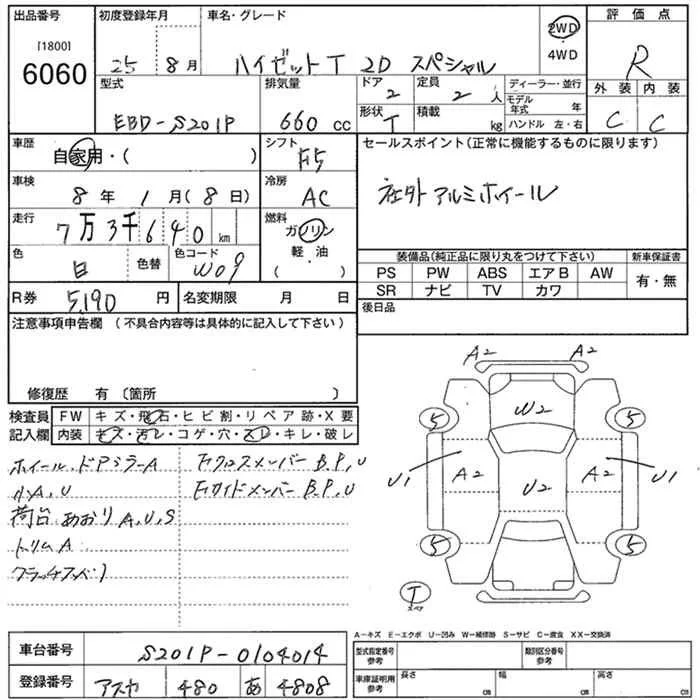 出品番号
[1800]
6060
初度登録年月
25 8月
車名・グレード
ハイゼットT 2D スペシャル
2WD
4WD
評価点
R
型式
EBD-S201P
排気量
660 cc
ドア
2
定員
2人
形状
T
積載
kg
ディーラー・並行
モデル年式 年
ハンドル 左・右
外装 内装
C C
車歴
自家用・( )
シフト
F5
セールスポイント(正常に機能するものに限ります)
社外アルミホイール
車検
8年 1月(8日)
冷房
AC
走行
7万3千640 km
燃料
ガソリン
軽・油
( )
色
白
色替
色コード
W09
装備品(純正品に限り丸をつけて下さい)
新車保証書
PS PW ABS エアB AW
有・無
SR ナビ TV カワ
R券
5,190 円
名変期限 月 日
後日品
注意事項申告欄 (不具合内容等は具体的に記入して下さい)
修復歴 有 〔箇所 〕
検査員
記入欄
FW キズ・飛石・ヒビ割・リペア跡・X要
内装 キズ・汚レ・コゲ・穴・スレ・キレ・破レ
ホイール、ドアミラーA
小A、U
荷台 あおりA,U,S
トリムA
Fクロスメンバー B.P,U
Fサイドメンバー B.P,U
A2 A2
W2
5 5
U1 A2 A2 U1
U2
5 5
T
スペア
A-キズ E-エクボ U-凹み W-補修跡 S-サビ C-腐食 XX-交換済
車台番号
S201P-0104014
登録番号
アスカ 480 あ 4808
型式指定番号
参考
類別区分番号
参考
車庫証明用
参考
長さ cm
幅 cm
高さ cm